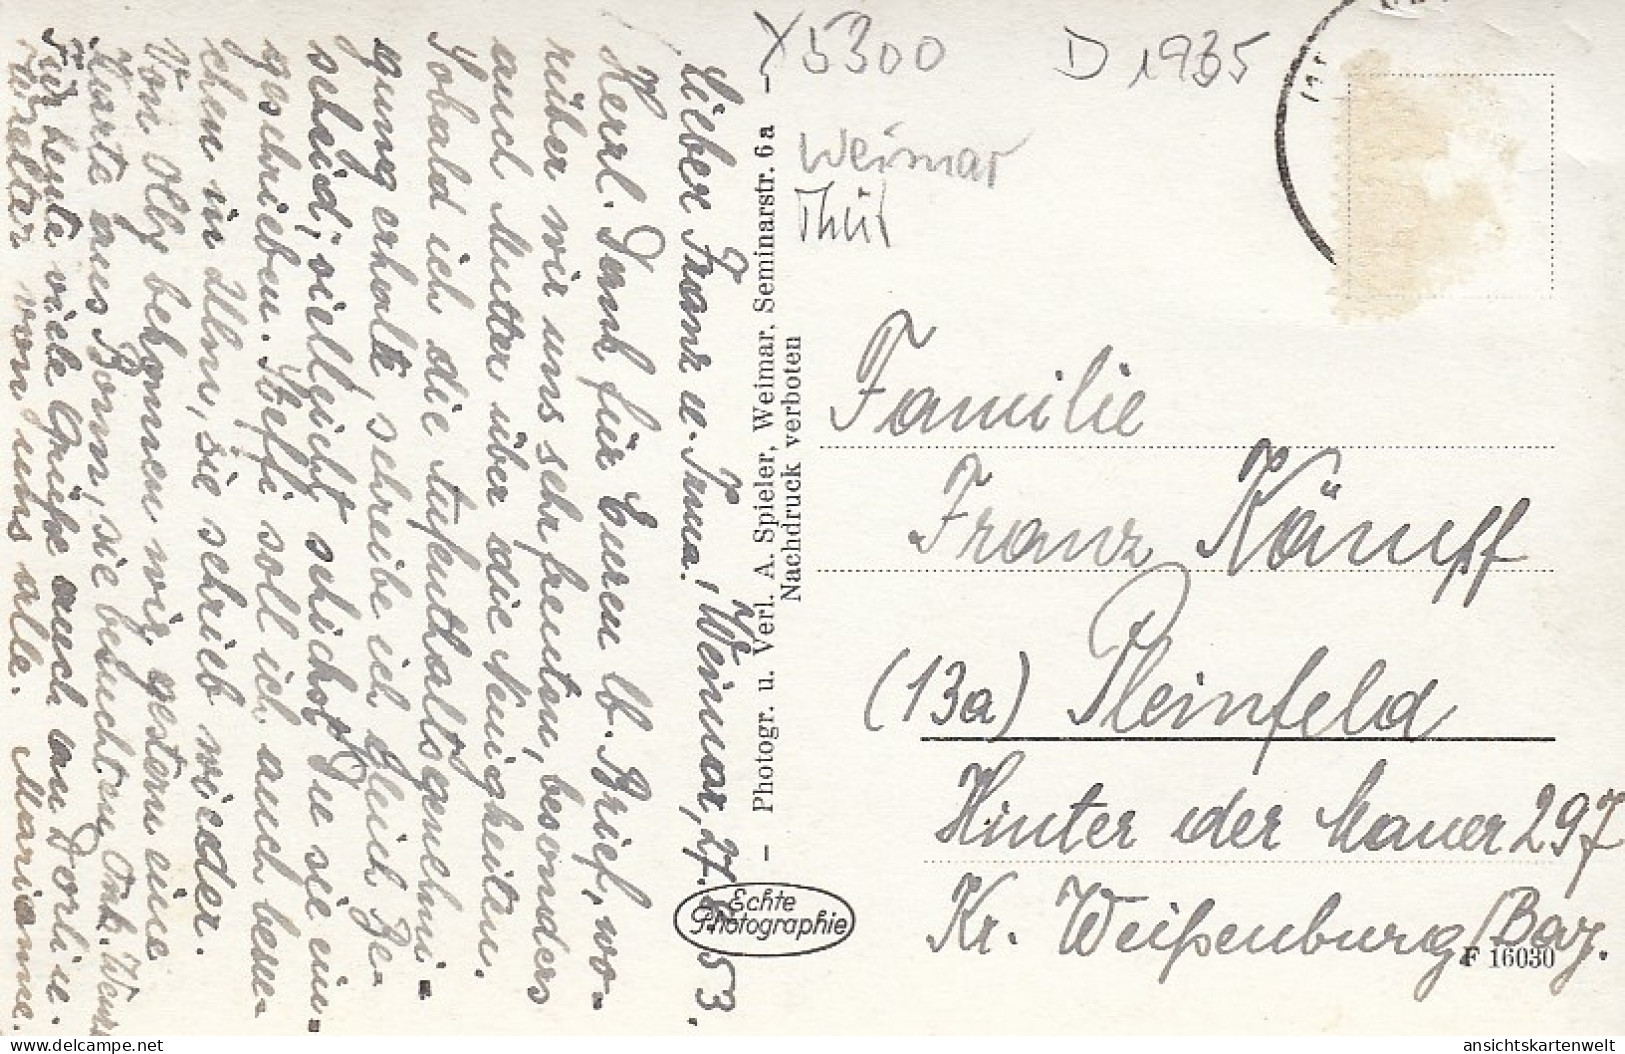 X5300 D 1935
Weimar
Thür
Weimar, 27. 53.
Lieber Franz u. Anna!
Herzl. Dank für Euren lb. Brief, wo-
rüber wir uns sehr freuten, besonders
auch Mutter über die Neuigkeiten.
Sobald ich die Aufenthaltsgenehmi-
gung erhalte, schreibe ich gleich Be-
scheid; vielleicht schickst Du sie ein-
geschrieben. Steffi soll ich auch besu-
chen in Ulm, sie schrieb wieder.
Von Olly bekommen wir gestern eine
Karte aus Bonn, sie besuchten Onk.
Für heute viele Grüße auch an Dorli u.
Walter von uns alle. Marianne.
– Photogr. u. Verl. A. Spieler, Weimar. Seminarstr. 6a –
Nachdruck verboten
Echte
Photographie
Familie
Franz Kämpff
(13a) Pleinfeld
Hinter der Mauer 297
Kr. Weißenburg/Bay.
F 16030
ansichtskartenwelt.com
ansichtskartenwelt